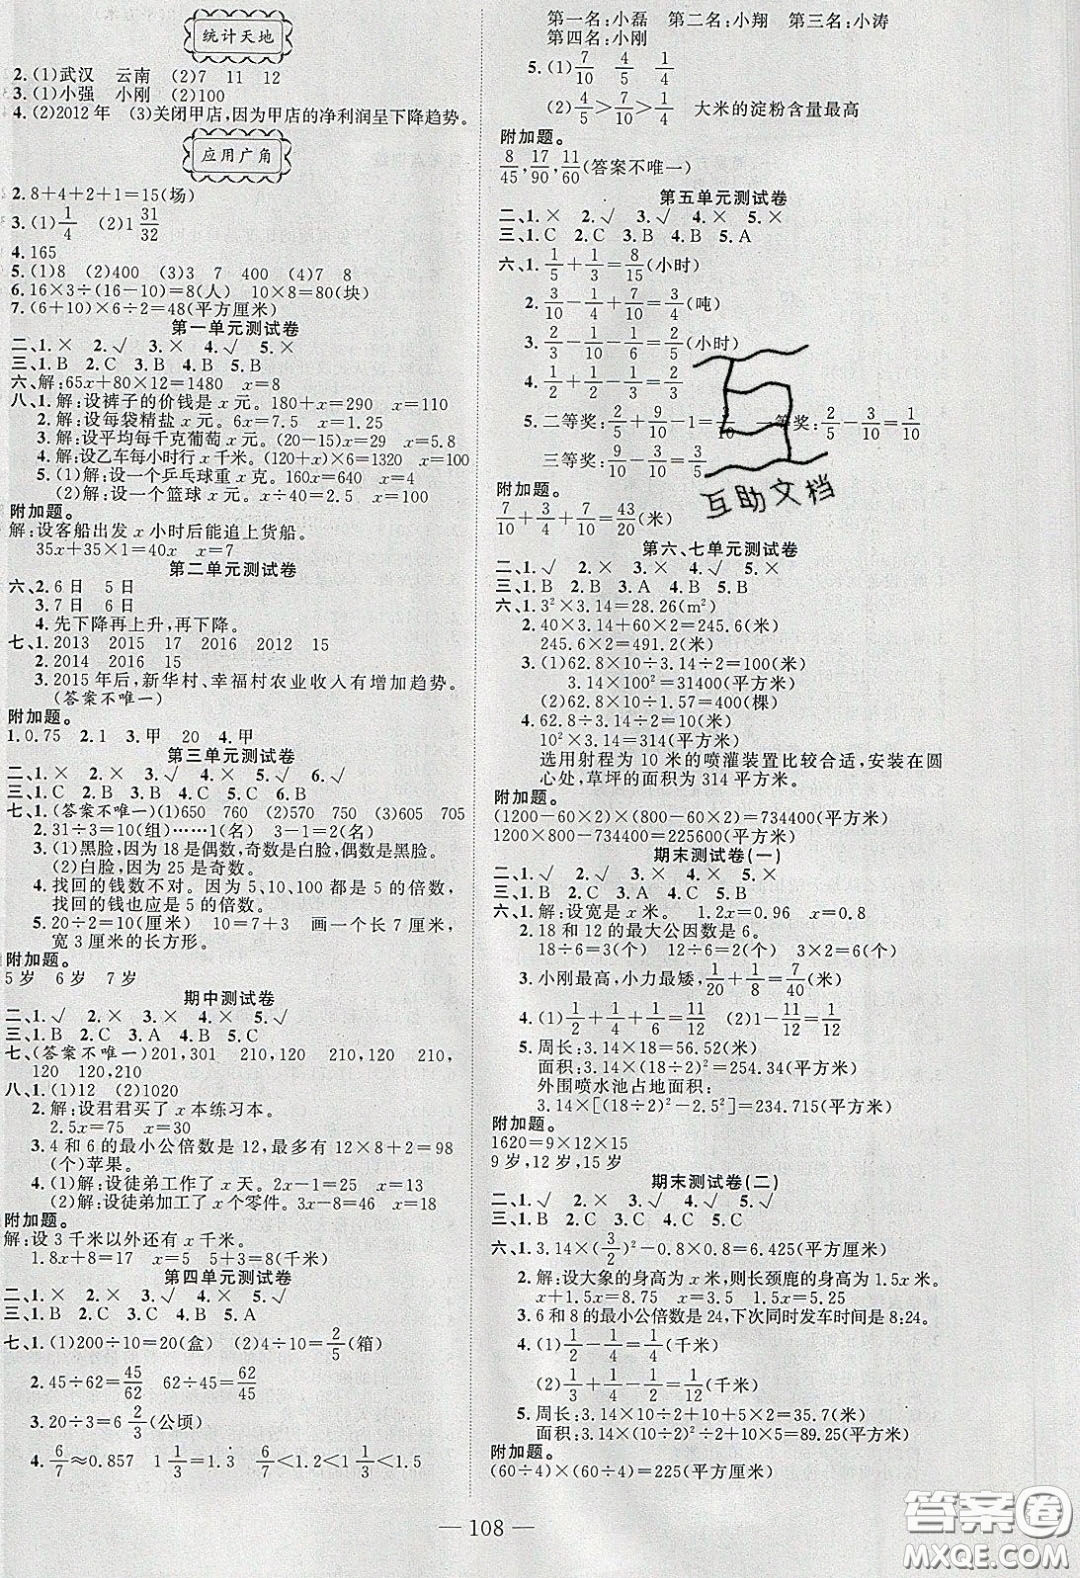 统计天地
2.(1)武汉 云南 (2)7 11 12
3.(1)小强 小刚 (2)100
4.(2)2012年 (3)关闭甲店,因为甲店的净利润呈下降趋势。
应用广角
2.8+4+2+1=15(场)
3.(1)1/4 (2)1 31/32
4.165
5.(1)8 (2)400 (3)3 7 400 (4)7 8
6.16×3÷(16-10)=8(人) 10×8=80(块)
7.(6+10)×6÷2=48(平方厘米)
第一单元测试卷
二、1.× 2.√ 3.× 4.× 5.√
三、1.B 2.C 3.B 4.B 5.B
六、解:65x+80×12=1480 x=8
八、1.解:设裤子的价钱是x元。180+x=290 x=110
2.解:设每袋精盐x元。6x=7.5 x=1.25
3.解:设平均每千克葡萄x元。(20-15)x=29 x=5.8
4.解:设乙车每小时行x千米。(120+x)×6=1320 x=100
5.(1)解:设一个乒乓球重x克。160x=640 x=4
(2)解:设一个篮球x元。x÷40=2.5 x=100
附加题。
解:设客船出发x小时后能追上货船。
35x+35×1=40x x=7
第二单元测试卷
六、2.6日 5日
3.7日 6日
4.先下降再上升,再下降。
七、1.2013 2015 17 2016 2012 15
2.2014 2016 15
3.2015年后,新华村、幸福村农业收入有增加趋势。
(答案不唯一)
附加题。
1.0.75 2.1 3.甲 20 4.甲
第三单元测试卷
二、1.× 2.× 3.√ 4.× 5.× 6.√
三、1.B 2.C 3.A 4.B 5.C 6.B
七、1.(答案不唯一)(1)650 760 (2)570 750 (3)605 705
2.31÷3=10(组)……1(名) 3-1=2(名)
3.(1)黑脸,因为18是偶数,奇数是白脸,偶数是黑脸。
(2)白脸,因为25是奇数。
4.找回的钱数不对。因为5、10、100都是5的倍数,
找回的钱也应是5的倍数。
5.20÷2=10(厘米) 10=7+3 画一个长7厘米,
宽3厘米的长方形。
附加题。
5岁 6岁 7岁
期中测试卷
二、1.√ 2.× 3.× 4.× 5.√
三、1.B 2.C 3.A 4.B 5.C
七、(答案不唯一)201,301 210,120 210,120 210,
120 120,210
八、1.(1)12 (2)1020
2.解:设君君买了x本练习本。
2.5x=75 x=30
3.4和6的最小公倍数是12,最多有12×8+2=98
(个)苹果。
4.(1)解:设徒弟工作了x天。2x-1=25 x=13
(2)解:设徒弟加工了x个零件。3x-8=46 x=18
附加题。
解:设3千米以外还有x千米。
1.8x+8=17 x=5 3+5=8(千米)
第四单元测试卷
二、1.× 2.√ 3.× 4.√ 5.×
三、1.B 2.C 3.B 4.B 5.C
七、1.(1)200÷10=20(盒) (2)4÷10=2/5(箱)
2.45÷62=45/62 62÷45=62/45
3.20÷3=6 2/3(公顷)
4.6/7≈0.857 1 1/3=1.3 6/7<1.2<1 1/3<1.5
第一名:小磊 第二名:小翔 第三名:小涛
第四名:小刚
5.(1)7/10 4/5 1/4
(2)4/5>7/10>1/4 大米的淀粉含量最高
附加题。
8/45,17/90,11/60(答案不唯一)
第五单元测试卷
二、1.× 2.√ 3.√ 4.× 5.×
三、1.C 2.C 3.B 4.B 5.A
六、1.1/5+1/3=8/15(小时)
2.3/10-1/4+7/10=3/4(吨)
3.2/3-1/10-1/6=2/5(小时)
4.1/2+1/2-1/3=2/3
5.二等奖:2/5+9/10-1=3/10 一等奖:2/5-3/10=1/10
三等奖:9/10-3/10=3/5
附加题。
7/10+3/4+7/10=43/20(米)
第六、七单元测试卷
二、1.√ 2.× 3.× 4.√ 5.×
三、1.C 2.C 3.A 4.B 5.C
六、1.3²×3.14=28.26(m²)
2.40×3.14+60×2=245.6(米)
245.6×2=491.2(米)
3.(1)62.8×10÷3.14÷2=100(米)
3.14×100²=31400(平方米)
(2)62.8×10÷1.57=400(棵)
4.62.8÷3.14÷2=10(米)
10²×3.14=314(平方米)
选用射程为10米的喷灌装置比较合适,安装在圆
心处,草坪的面积为314平方米。
附加题。
(1200-60×2)×(800-60×2)=734400(平方米)
1200×800-734400=225600(平方米)
期末测试卷(一)
二、1.× 2.√ 3.× 4.√ 5.×
三、1.B 2.C 3.A 4.B 5.C
六、1.解:设宽是x米。 1.2x=0.96 x=0.8
2.18和12的最大公因数是6。
18÷6=3(个) 12÷6=2(个) 3×2=6(个)
3.小刚最高,小力最矮,1/20+1/8=7/40(米)
4.(1)1/2+1/4+1/6=11/12 (2)1-11/12=1/12
5.周长:3.14×18=56.52(米)
面积:3.14×(18÷2)²=254.34(平方米)
外围喷水池占地面积:
3.14×[(18÷2)²-2.5²]=234.715(平方米)
附加题。
1620=9×12×15
9岁,12岁,15岁
期末测试卷(二)
二、1.√ 2.× 3.√ 4.√ 5.×
三、1.B 2.C 3.C 4.C 5.C
六、1.3.14×(3/2)²-0.8×0.8=6.425(平方厘米)
2.解:设大象的身高为x米,则长颈鹿的身高为1.5x米。
x+1.5x=8.75 x=3.5 1.5x=5.25
3.6和8的最小公倍数是24,下次同时发车时间是8:24。
4.(1)1/2-1/4=1/4(千米)
(2)1/3+1/4-1/2=1/12(千米)
5.周长:3.14×10÷2+10+5×2=35.7(米)
面积:3.14×(10÷2)²÷2+10×5=89.25(平方米)
附加题。
(60÷4)×(60÷4)=225(平方厘米)
— 108 —
互助文档
答案圈
MXQE.COM